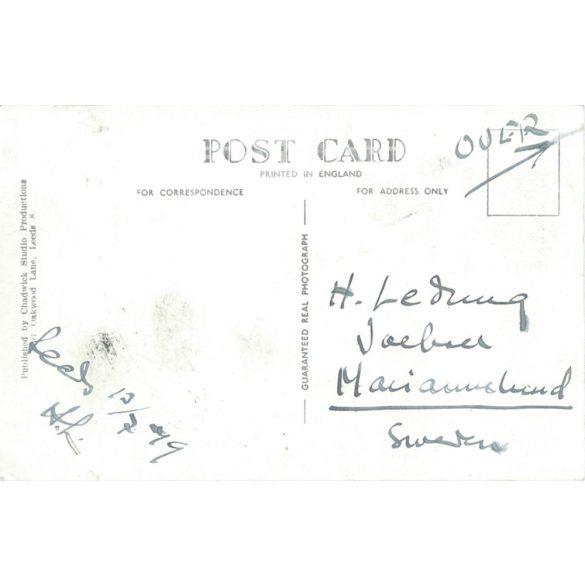 OVER
POST CARD
PRINTED IN ENGLAND
FOR CORRESPONDENCE
FOR ADDRESS ONLY
Published by Chadwick Studio Productions
Oakwood Lane, Leeds 8.
GUARANTEED REAL PHOTOGRAPH
H. Ledung
Mariannelund
Sweden
Leeds
12/2